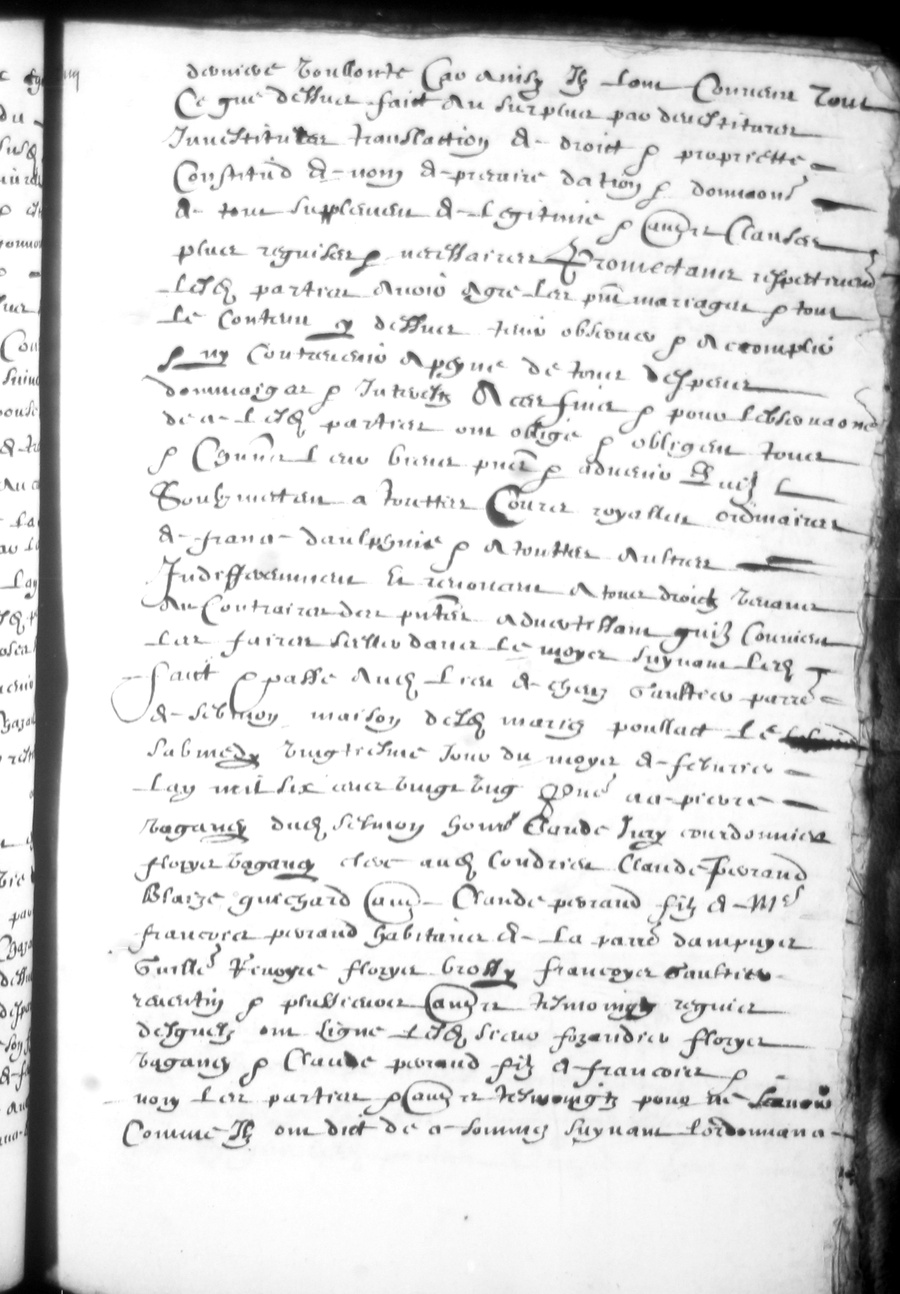 derniere vollonte Car ainsy Ilz lont Convenu Tout
Ce que dessus faict Au surplus par devestiture
Investiture translaction & droict & propriette
Constitué & nom & precaire da tion & donnaons
de tout supplement de legitime & autres Clauses
plus requises & necessaires Promectans respectivemt
Lesd parties avoir Agre les pnt mariages & tout
Le Contenu cy dessus tenir observer & Accomplir
& ny Contrevenir A peyne de tous despens
dommaiges & Interestz A ces fins & pour lobservaon
de ce Lesd parties ont oblige & obligent tous
& Leurs biens pnts & advenir
Soubzmettent a touttes Cours royalles ordinaires
de france daulphine & A touttes Aultres
Indifferemment Et renoncent A tous droictz venans
Au Contraire des pntes advertissant quilz Convient
Les faire seeller dans Le moys suyvant Lesd
faict & passe Aud Lieu de chez Gaultier parre
de sebmon maison desd maries poullact Le
sabmedy vingtiesme Jour du moys de febvrier
Lan mil six cens vingt ung pierre
vaganey dud sebmon Claude Jury courdonnier
floryes vaganey clerc aud Coudrieu Claude perrand
Blaize guichard Claude perrand filz de Mes
francoies perrand habitans de La parre dampuys
Guille floryes brossy francoyes Gaultier
reventin & plussieurs autres tesmoingtz requis
desquelz ont signe Lesd sieurs floryes
vaganey & Claude perrand filz de francoies &
non Les parties & autres tesmoingtz pour ne scavoir
Comme Ilz ont dict de ce sommes suyvant lordonnance